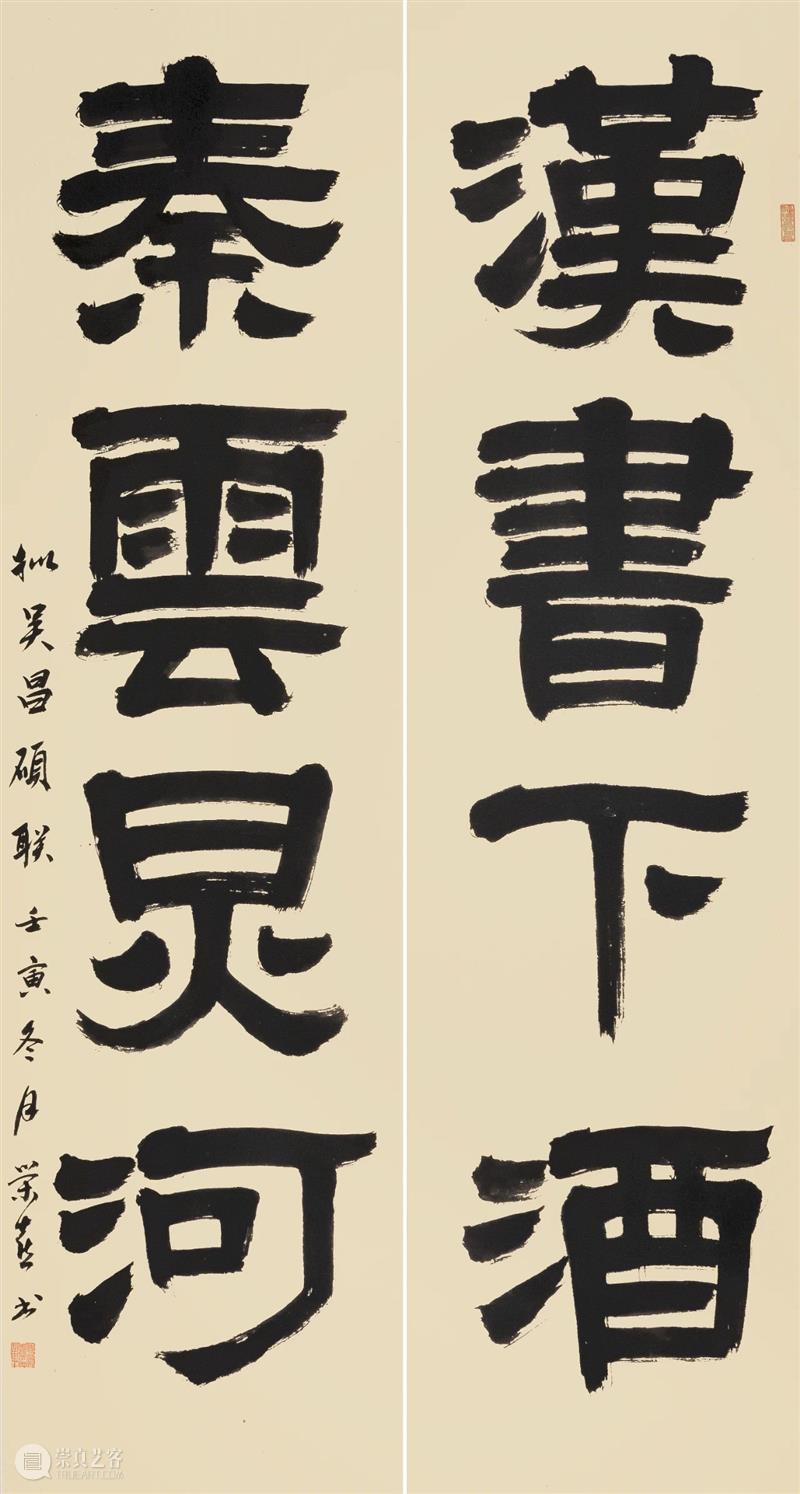 漢書下酒
秦雲炅河
拟吴昌硕联 壬寅冬月 荣 书
崇真艺客
TRUEART.COM